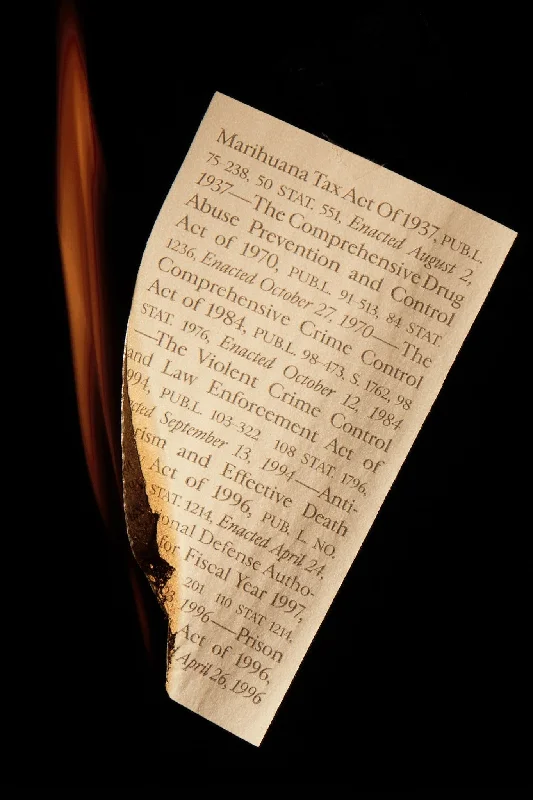 Marihuana Tax Act Of 1937, PUB.L.
75-238, 50 STAT. 551, Enacted August 2,
1937—The Comprehensive Drug
Abuse Prevention and Control
Act of 1970, PUB.L. 91-513, 84 STAT.
1236, Enacted October 27, 1970—The
Comprehensive Crime Control
Act of 1984, PUB.L. 98-473, S. 1762, 98
STAT. 1976, Enacted October 12, 1984
—The Violent Crime Control
and Law Enforcement Act of
994, PUB.L. 103-322 108 STAT. 1796,
cted September 13, 1994—Anti-
rism and Effective Death
Act of 1996, PUB. L. NO.
STAT. 1214, Enacted April 24,
onal Defense Autho-
for Fiscal Year 1997,
201 110 STAT. 1214,
1996—Prison
Act of 1996,
April 26, 1996